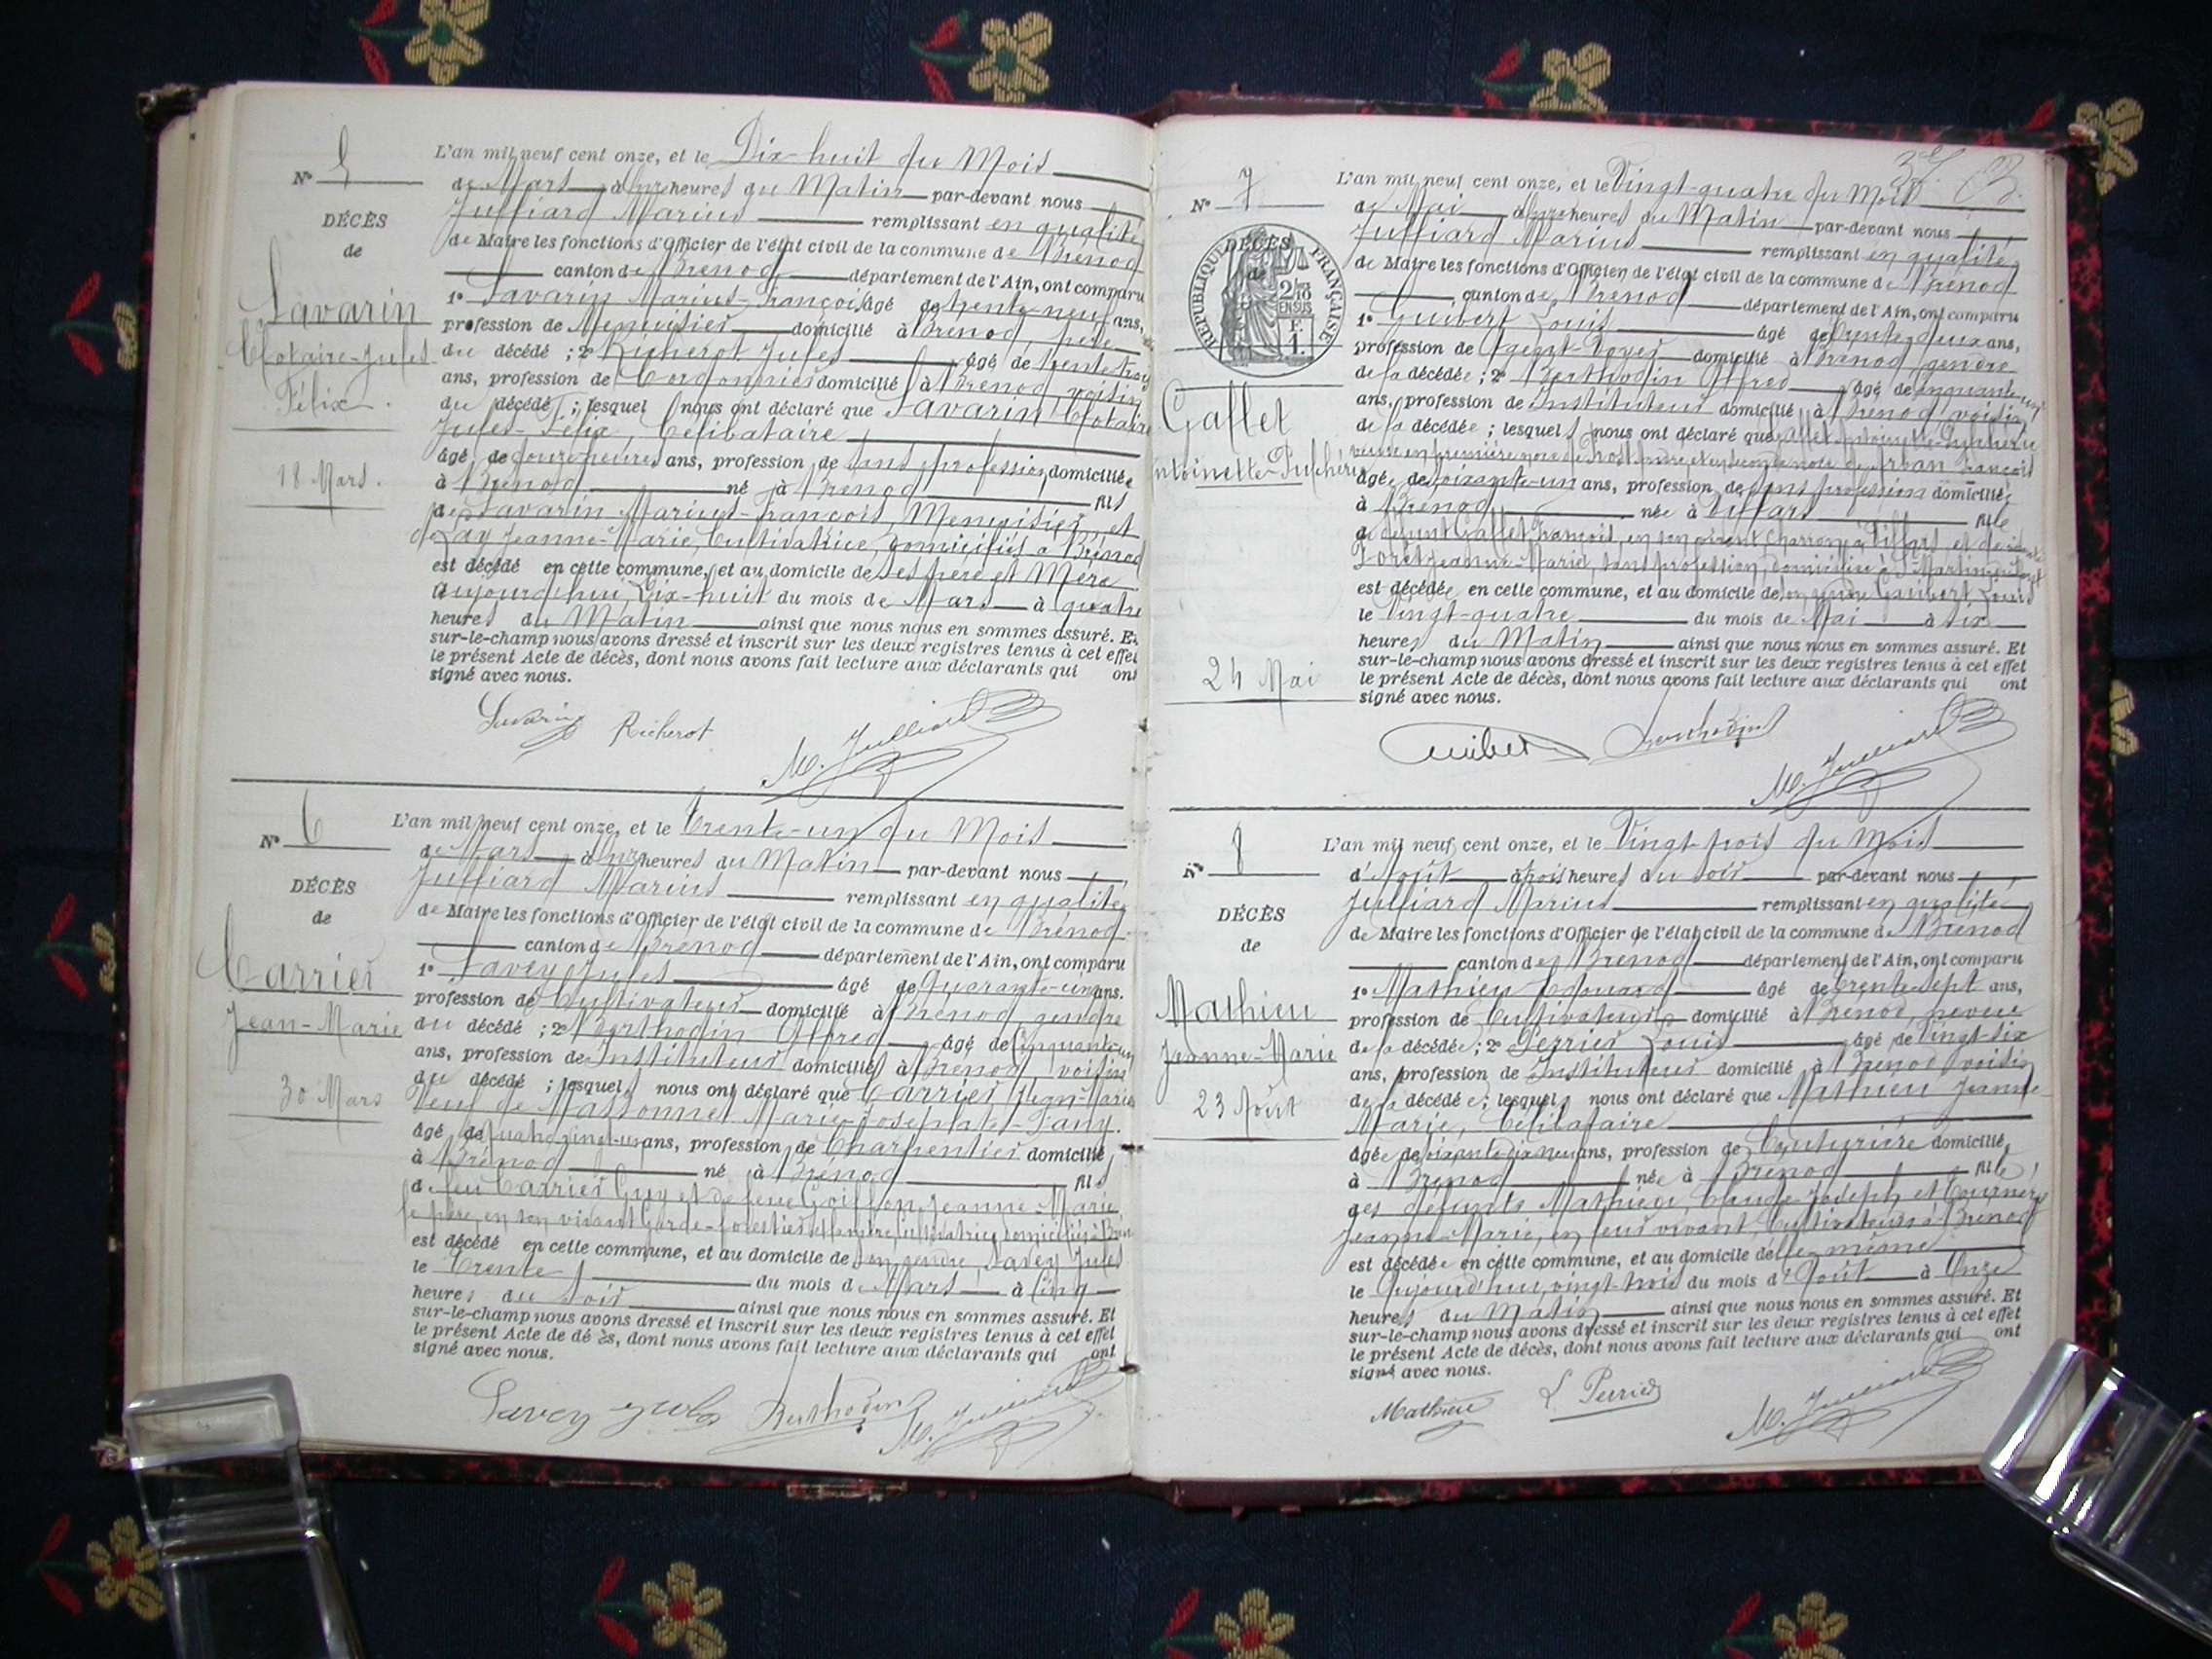 N° 5
DÉCÈS
de
Savarin
Clotaire-Jules
Félix.
18 Mars.
L'an mil neuf cent onze, et le Dix-huit du Mois
de Mars à onze heures du Matin par-devant nous
Julliard Marius remplissant en qualité
de Maire les fonctions d'Officier de l'état civil de la commune de Brénod
canton de Brénod département de l'Ain, ont comparu
1° Savarin Marius-François âgé de trente-neuf ans,
profession de Menuisier domicilié à Brénod, père
du décédé ; 2° Richerot Jules âgé de trente-trois
ans, profession de Cordonnier domicilié à Brénod, voisin
du décédé ; lesquels nous ont déclaré que Savarin Clotaire
Jules-Félix, Célibataire
âgé de douze heures ans, profession de sans profession, domicilié
à Brénod né à Brénod fils
de Savarin Marius-François, Menuisier, et
de Lay Jeanne-Marie, Cultivatrice, domiciliés à Brénod
est décédé en cette commune, et au domicile de ses père et Mère
Aujourd'hui, Dix-huit du mois de Mars à quatre
heures du Matin ainsi que nous nous en sommes assuré. Et
sur-le-champ nous avons dressé et inscrit sur les deux registres tenus à cet effet
le présent Acte de décès, dont nous avons fait lecture aux déclarants qui ont
signé avec nous.
Savarin Richerot M. Julliard
N° 6
DÉCÈS
de
Carrier
Jean-Marie
30 Mars
L'an mil neuf cent onze, et le Trente-un du Mois
de Mars à onze heures du Matin par-devant nous
Julliard Marius remplissant en qualité
de Maire les fonctions d'Officier de l'état civil de la commune de Brénod
canton de Brénod département de l'Ain, ont comparu
1° Savey Jules âgé de Quarante-un ans.
profession de Cultivateur domicilié à Brénod, gendre
du décédé ; 2° Berthodin Alfred âgé de Cinquante-un
ans, profession de Instituteur domicilié à Brénod, voisin
du décédé ; lesquels nous ont déclaré que Carrier Jean-Marie
Veuf de Massonnet Marie-Josephte-Fany.
âgé de quatre vingt-un ans, profession de Charpentier domicilié
à Brénod né à Brénod fils
de feu Carrier Guy et de feue Goiffon Jeanne-Marie,
le père en son vivant Garde-forestier et la mère cultivatrice domiciliés à Brénod
est décédé en cette commune, et au domicile de son gendre, Savey Jules
le Trente du mois de Mars à Cinq
heures du Soir ainsi que nous nous en sommes assuré. Et
sur-le-champ nous avons dressé et inscrit sur les deux registres tenus à cet effet
le présent Acte de dé ès, dont nous avons fait lecture aux déclarants qui ont
signé avec nous.
Savey Jules Berthodin M. Julliard
N° 7
DÉCÈS
de
RÉPUBLIQUE FRANÇAISE
2/10
EN SUS
F.
1.
Gallet
Antoinette-Pulchérie
24 Mai
L'an mil neuf cent onze, et le Vingt-quatre du Mois
de Mai à onze heures du Matin par-devant nous
Julliard Marius remplissant en qualité
de Maire les fonctions d'Officier de l'état civil de la commune de Brénod
canton de Brénod département de l'Ain, ont comparu
1° Guibert Louis âgé de trente-deux ans,
profession de Agent-Voyer domicilié à Brénod gendre
de la décédée ; 2° Berthodin Alfred âgé de cinquante-un
ans, profession de Instituteur domicilié à Brénod, voisin
de la décédée ; lesquels nous ont déclaré que Gallet Antoinette-Pulchérie
veuve en première noce de et en seconde noce de François
âgée de soixante-un ans, profession de sans profession domiciliée
à Brénod née à Villars fille
de défunt Gallet François, en son vivant Charron à Villars et de
Forêt Jeanne-Marie, sans profession, domiciliée à St Martin
est décédée en cette commune, et au domicile de son gendre Guibert Louis
le Vingt-quatre du mois de Mai à six
heures du Matin ainsi que nous nous en sommes assuré. Et
sur-le-champ nous avons dressé et inscrit sur les deux registres tenus à cet effet
le présent Acte de décès, dont nous avons fait lecture aux déclarants qui ont
signé avec nous.
Guibert Berthodin M. Julliard
N° 8
DÉCÈS
de
Mathieu
Jeanne-Marie
23 Août
L'an mil neuf cent onze, et le Vingt-trois du Mois
d'Août à trois heures du soir par-devant nous
Julliard Marius remplissant en qualité
de Maire les fonctions d'Officier de l'état civil de la commune de Brénod
canton de Brénod département de l'Ain, ont comparu
1° Mathieu Edouard âgé de trente-sept ans,
profession de Cultivateur domicilié à Brénod, neveu
de la décédée ; 2° Perrier Louis âgé de Vingt-six
ans, profession de Instituteur domicilié à Brénod voisin
de la décédée ; lesquels nous ont déclaré que Mathieu Jeanne
Marie, Célibataire
âgée de soixante dix neuf ans, profession de Couturière domiciliée
à Brénod née à Brénod fille
des défunts Mathieu Claude-Joseph et Tournery
Jeanne-Marie, en leur vivant, Cultivateurs à Brénod
est décédée en cette commune, et au domicile d'elle-même
le Aujourd'hui, vingt-trois du mois d'Août à Onze
heures du Matin ainsi que nous nous en sommes assuré. Et
sur-le-champ nous avons dressé et inscrit sur les deux registres tenus à cet effet
le présent Acte de décès, dont nous avons fait lecture aux déclarants qui ont
signé avec nous.
Mathieu L. Perrier M. Julliard